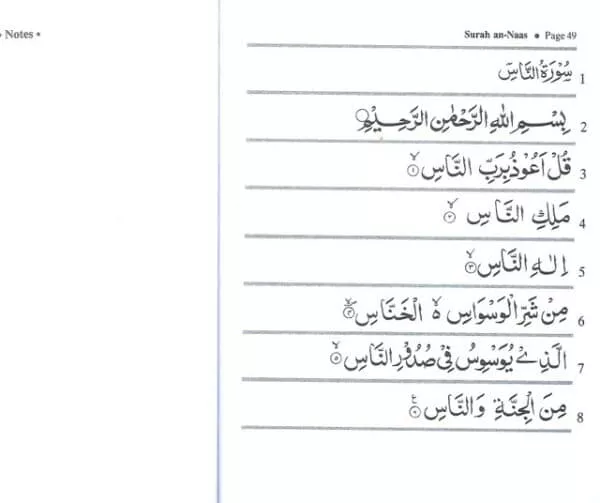 Notes •
Surah an-Naas • Page 49
سُوْرَةُ النَّاسِ 1
بِسْمِ اللهِ الرَّحْمٰنِ الرَّحِيْمِ 2
قُلْ اَعُوْذُ بِرَبِّ النَّاسِ ۙ﴿۱﴾ 3
مَلِكِ النَّاسِ ۙ﴿۲﴾ 4
اِلٰهِ النَّاسِ ۙ﴿۳﴾ 5
مِنْ شَرِّ الْوَسْوَاسِ ۙ الْخَنَّاسِ 6
الَّذِيْ يُوَسْوِسُ فِيْ صُدُوْرِ النَّاسِ ۙ﴿۵﴾ 7
مِنَ الْجِنَّةِ وَالنَّاسِ 8